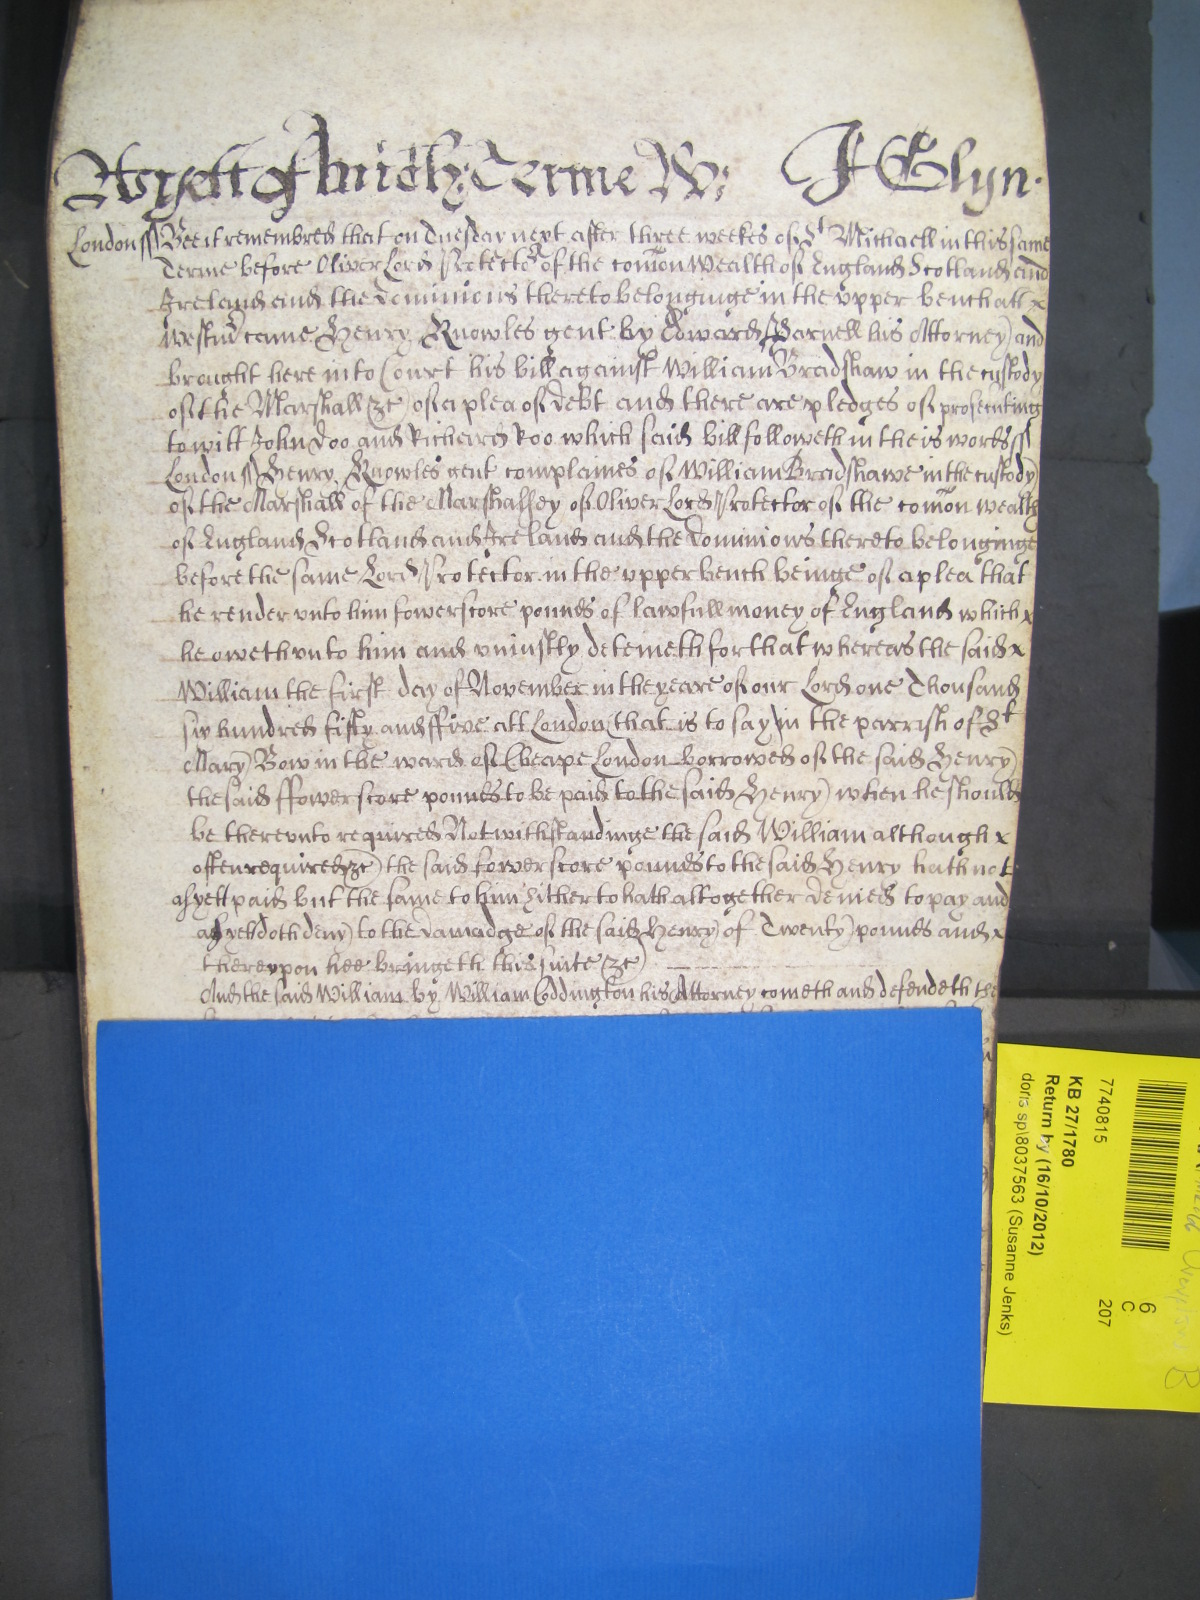 Wyett of Mich: Terme W: J Glyn.
London ss Bee it remembred that on Tuesday next after three weekes of St Michaell in this same
Terme before Oliver Lord Protector of the com̄on wealth of England Scotland and
Ireland and the dominions thereto belonginge in the upper bench att x
Westm̄ came Henry Knowles gent by Edward Parnell his Attorney and
brought here into Court his bill against William Bradshaw in the custody
of the Marshall &c of a plea of debt and there are pledges of prosecuting
to witt John Doo and Richard Roo which said bill followeth in theis words ss
London ss Henry Knowles gent complaines of William Bradshawe in the custody
of the Marshall of the Marshalsey of Oliver Lord Protector of the com̄on wealth
of England Scotland and Ireland and the dominions thereto belonginge
before the same Lord Protector in the upper bench beinge of a plea that
he render unto him fowerscore pounds of lawfull money of England which x
he oweth unto him and uniustly deteineth for that whereas the said x
William the first day of November in the yeare of our Lord one Thousand
six hundred fifty and ffive att London that is to say in the parrish of St
Mary Bow in the ward of Cheape London borrowed of the said Henry
the said ffowerscore pounds to be paid to the said Henry when he should
be thereunto required Notwithstandinge the said William although x
often required &c the said fowerscore pounds to the said Henry hath not
as yett paid but the same to him hitherto hath altogether denied to pay and
as yet doth deny to the damadge of the said Henry of Twenty pounds and x
thereupon hee bringeth this suite &c
And the said William by William Coddington his Attorney cometh and defendeth the
7740815
KB 27/1780
Return by (16/10/2012)
doris sp\8037563 (Susanne Jenks)
6
C
207